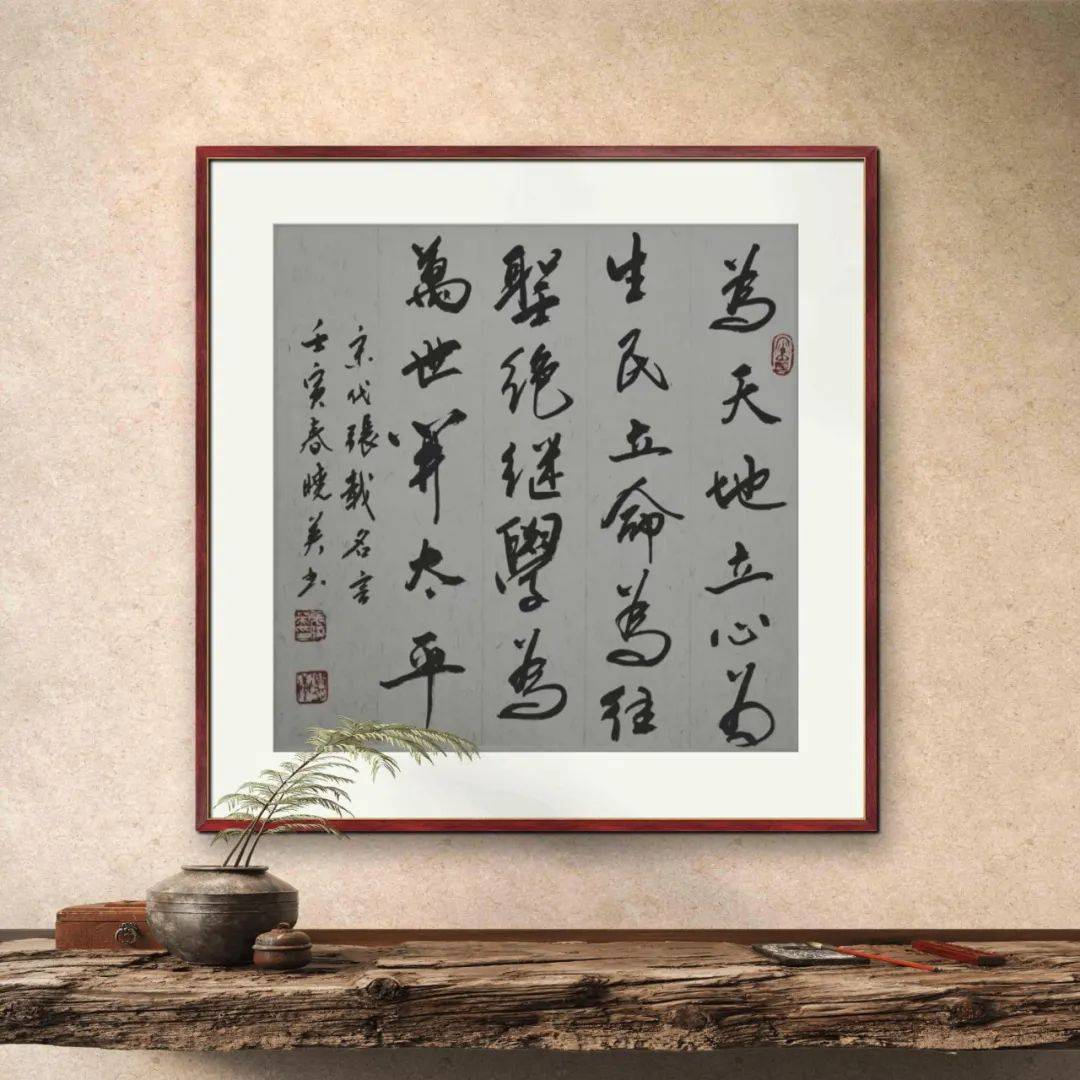 為天地立心为
生民立命為往
聖绝继學為
萬世開太平
宋代張載名言
壬寅春曉美书